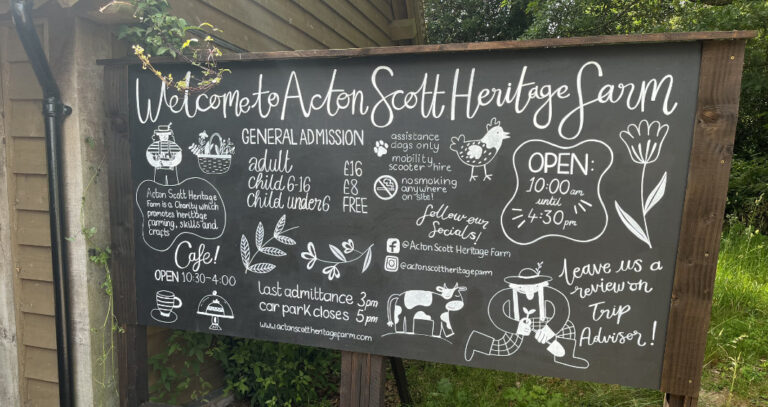 Welcome to Acton Scott Heritage Farm
Acton Scott Heritage
Farm is a Charity which
promotes heritage
farming, skills and
crafts
Cafe!
OPEN 10:30-4:00
GENERAL ADMISSION
adult £16
child 6-16 £8
child under 6 FREE
Last admittance 3pm
car park closes 5pm
www.actonscottheritagefarm.com
assistance
dogs only
mobility
scooter hire
no smoking
anywhere
on site!
follow our
socials!
@Acton Scott Heritage Farm
@actonscottheritagefarm
OPEN:
10:00 am
until
4:30 pm
Leave us a
review on
Trip
Advisor!